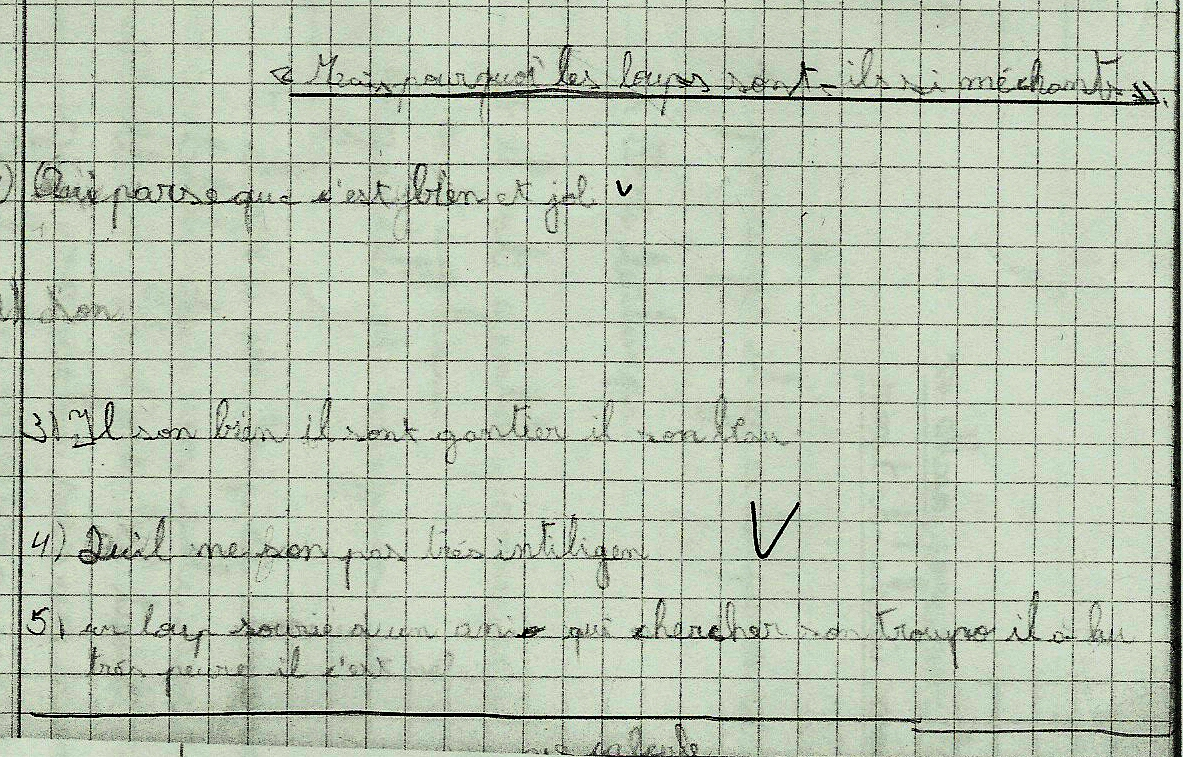 « Mais pourquoi les loups sont-ils si méchants ».
) Oui parseque c'est bien et joli
) non
3) Il son bien il sont gantier il son beau
4) Quil ne son pas très intiligen
5) un loup sourie a un ami qui chercher son troupo il a hu
très peure il c'est
calcule